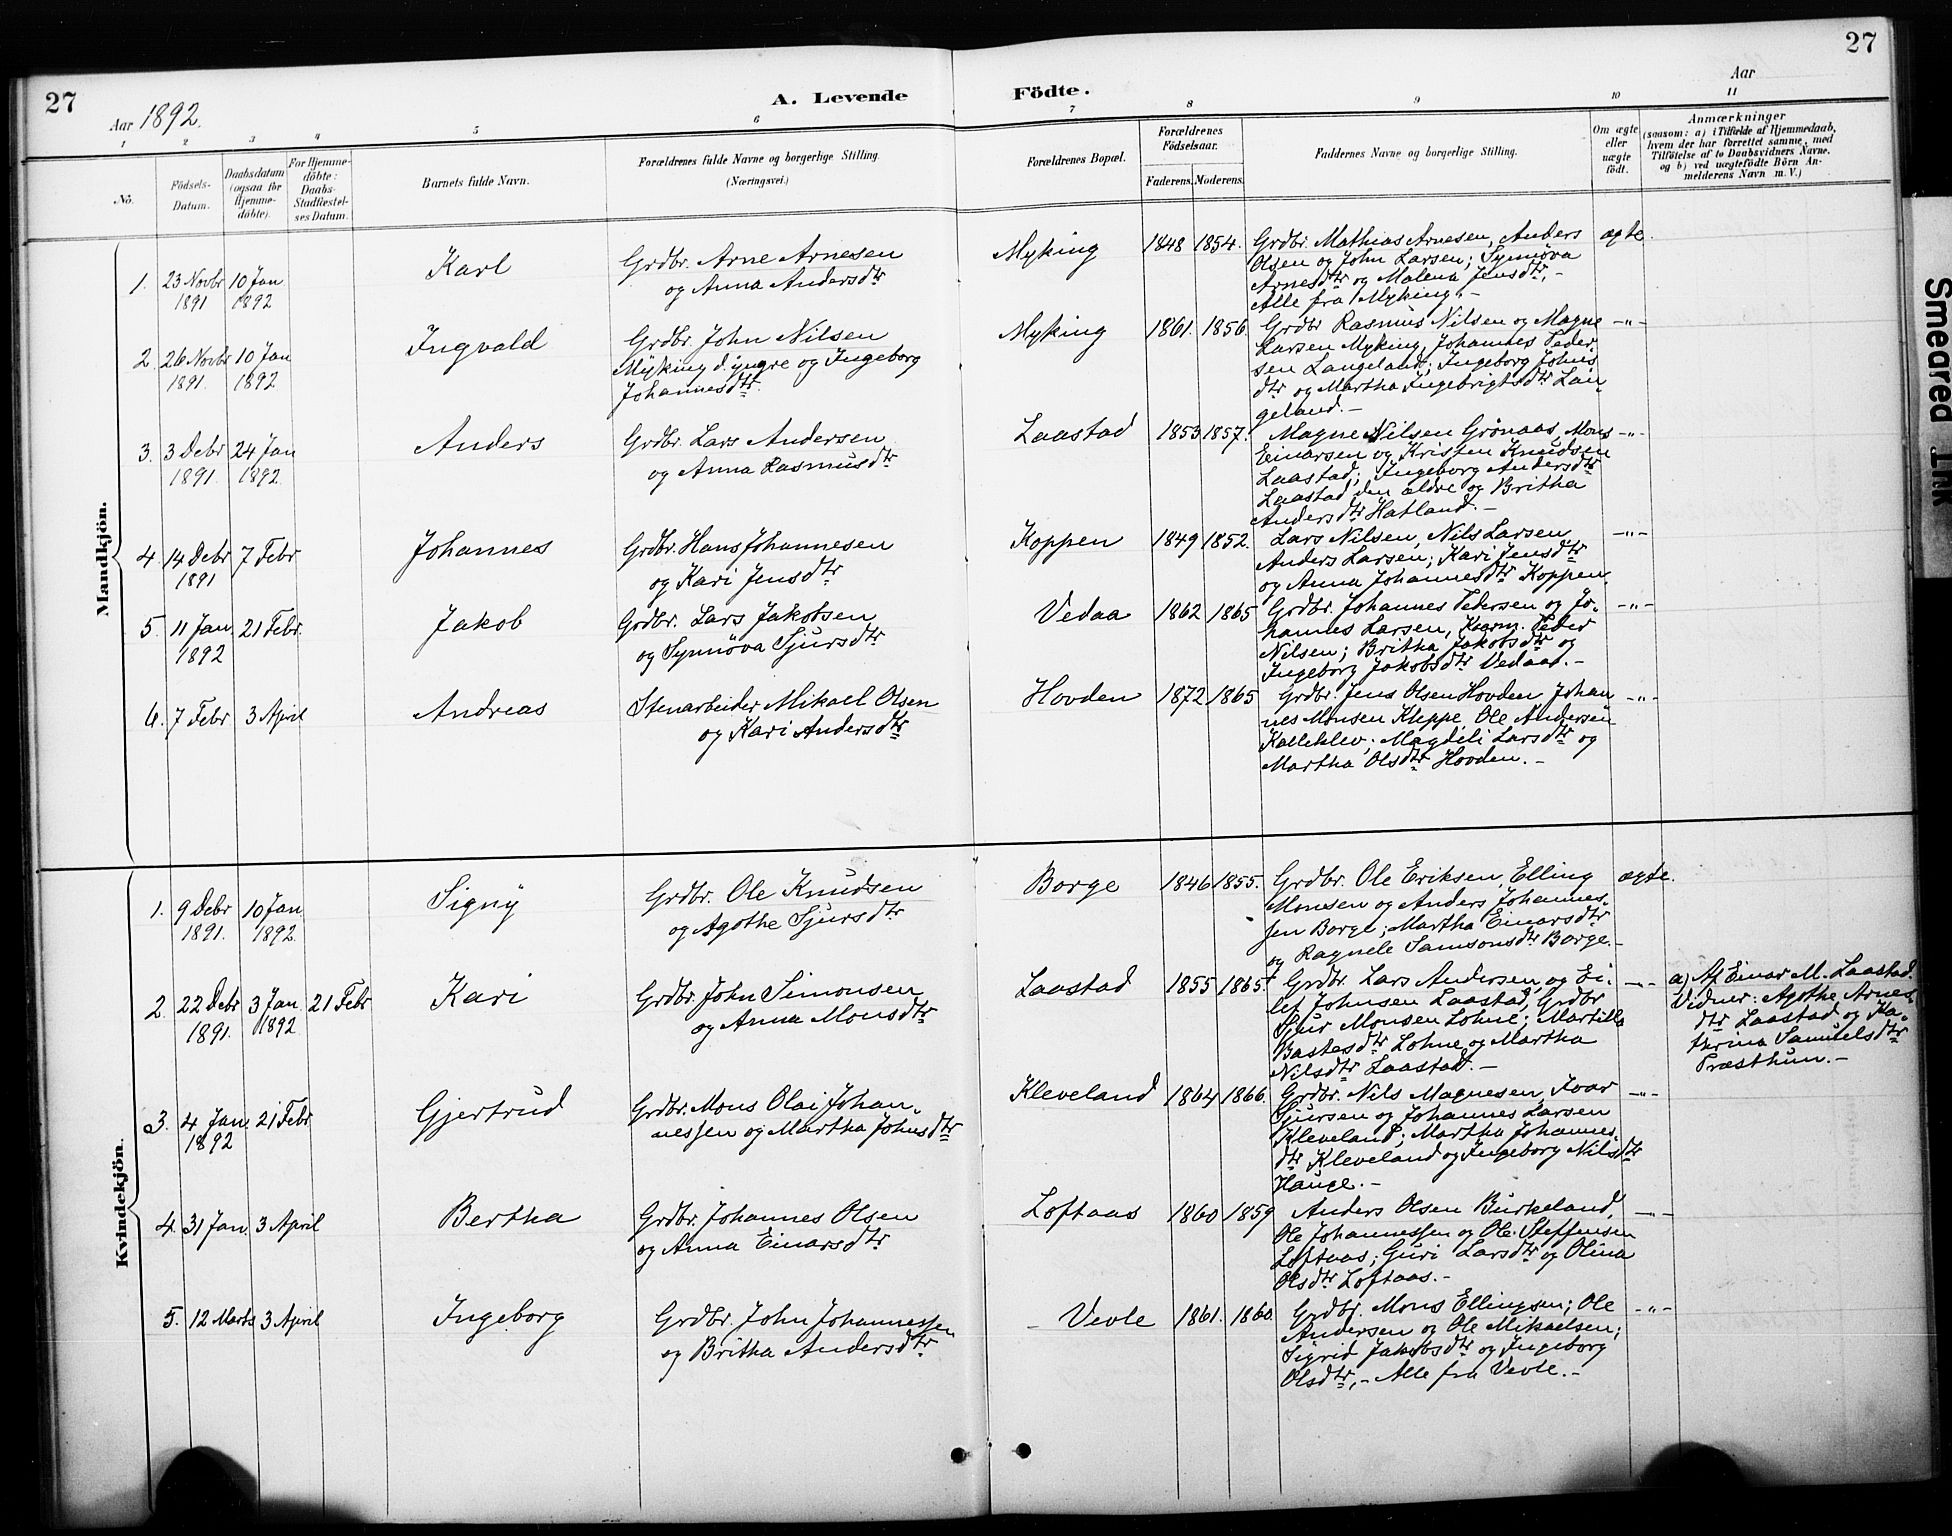 27
Aar 1892.
A. Levende Födte.
Aar
27
1 2 3 4 5 6 7 8 9 10 11
No.
Födsels-Datum.
Daabsdatum (ogsaa för Hjemme-döbte).
For Hjemme-döbte: Daabs-Stadfæstel-ses Datum.
Barnets fulde Navn.
Forældrenes fulde Navne og borgerlige Stilling. (Næringsvei.)
Forældrenes Bopæl.
Forældrenes Födselsaar.
Faderens. Moderens.
Faddernes Navne og borgerlige Stilling.
Om ægte eller uægte födt.
Anmærkninger
(saasom: a) i Tilfælde af Hjemmedaab,
hvem der har forrettet samme, med
Tilföielse af to Daabsvidners Navne.
og b) ved uægtefödte Börn An-
melderens Navn m. V.)
Mandkjön.
1. 23 Novbr 1891 10 Jan 1892 Karl
Grdbr. Arne Arnesen
og Anna Andersdtr
Myking 1848 1854.
Grdbr. Mathias Arnesen, Anders
Olsen og John Larsen; Synnöva
Arnesdtr og Malena Jensdtr,-
Alle fra Myking.-
ægte.
2. 26 Novbr 1891. 10 Jan 1892 Ingvald
Grdbr. John Nilsen
Myking d. yngre og Ingeborg
Johannesdtr.
Myking 1861. 1856
Grdbr Rasmus Nilsen og Magne
Larsen Myking, Johannes Peder
sen Langeland; Ingeborg Johns
dtr og Martha Ingebrigtsdtr Lan-
geland.-
-"-
3. 3 Debr 1891. 24 Jan 1892. Anders
Grdbr. Lars Andersen
og Anna Rasmusdtr
Laastad 1853 1857.
Magne Nilsen Grönaas, Mons
Einarsen og Kristen Knudsen
Laastad; Ingeborg Andersdtr
Laastad den ældre og Britha
Andersdtr Hatland.-
-"-
4. 14 Debr 1891 7 Febr Johannes
Grdbr. Hans Johannesen
og Kari Jensdtr
Koppen 1849 1852.
Lars Nilsen, Nils Larsen,
Anders Larsen; Kari Jensdtr
og Anna Johannesdtr Koppen
-"-
5. 11 Jan 1892 21 Febr. Jakob
Grdbr. Lars Jakobsen
og Synnöva Sjursdtr
Vedaa 1862 1865
Grdbr. Johannes Pedersen og Jo-
hannes Larsen, Kaarm. Peder
Nilsen; Britha Jakobsdtr og
Ingeborg Jakobsdtr Vedaa.-
-"-
6. 7 Febr 3 April Andreas
Stenarbeider Mikael Olsen
og Kari Andersdtr
Hovden 1872 1865
Grdbr. Jens Olsen Hovden, Johan
nes Monsen Kleppe, Ole Andersen
Kalleklev; Magdeli Larsdtr og
Martha Olsdtr Hovden.-
-"-
Kvindekjön.
1. 9 Debr 1891. 10 Jan 1892. Signÿ
Grdbr. Ole Knudsen
og Agothe Sjursdtr
Borge 1846 1855.
Grdbr. Ole Eriksen, Elling
Monsen og Anders Johannes-
sen Borge; Martha Einarsdtr
og Ragnele Samsonsdtr Borge.-
ægte.
2. 22 Debr 1891. 3 Jan 1892. 21 Febr Kari
Grdbr. John Simonsen
og Anna Monsdtr
Laastad 1855 1865
Grdbr. Lars Andersen og Ei-
lef Johnsen Laastad, Grdbr
Sjur Monsen Lohne; Martilla
Bastesdtr Lohne og Martha
Nilsdtr Laastad.-
-"-
a) Af Einar M. Laastad.
Vidner: Agothe Arnes-
dtr Laastad og Ka-
thrina Samuelsdtr
Præsthun.-
3. 4 Jan 1892 21 Febr Gjertrud
Grdbr. Mons Olai Johan-
nessen og Martha Johnsdtr
Kleveland 1864 1866.
Grdbr. Nils Magnesen, Ivar
Sjursen og Johannes Larsen
Kleveland; Martha Johannes-
dtr Kleveland og Ingeborg Nilsdtr
Hauge.-
-"-
4. 31 Jan. 3 April Bertha
Grdbr. Johannes Olsen
og Anna Einarsdtr
Loftaas 1860 1859
Anders Olsen Burkeland,
Ole Johannessen og Ole Steffensen
Loftaas; Guri Larsdtr og Olina
Olsdtr Loftaas.-
-"-
5. 12 Marts 3 April Ingeborg
Grdbr. John Johannessen
og Britha Andersdtr
Vevle 1861. 1860.
Grdbr. Mons Ellingsen; Ole
Andersen og Ole Mikaelsen;
Sigrid Jakobsdtr og Ingeborg
Olsdtr,- Alle fra Vevle.-
-"-
Smeared Ink